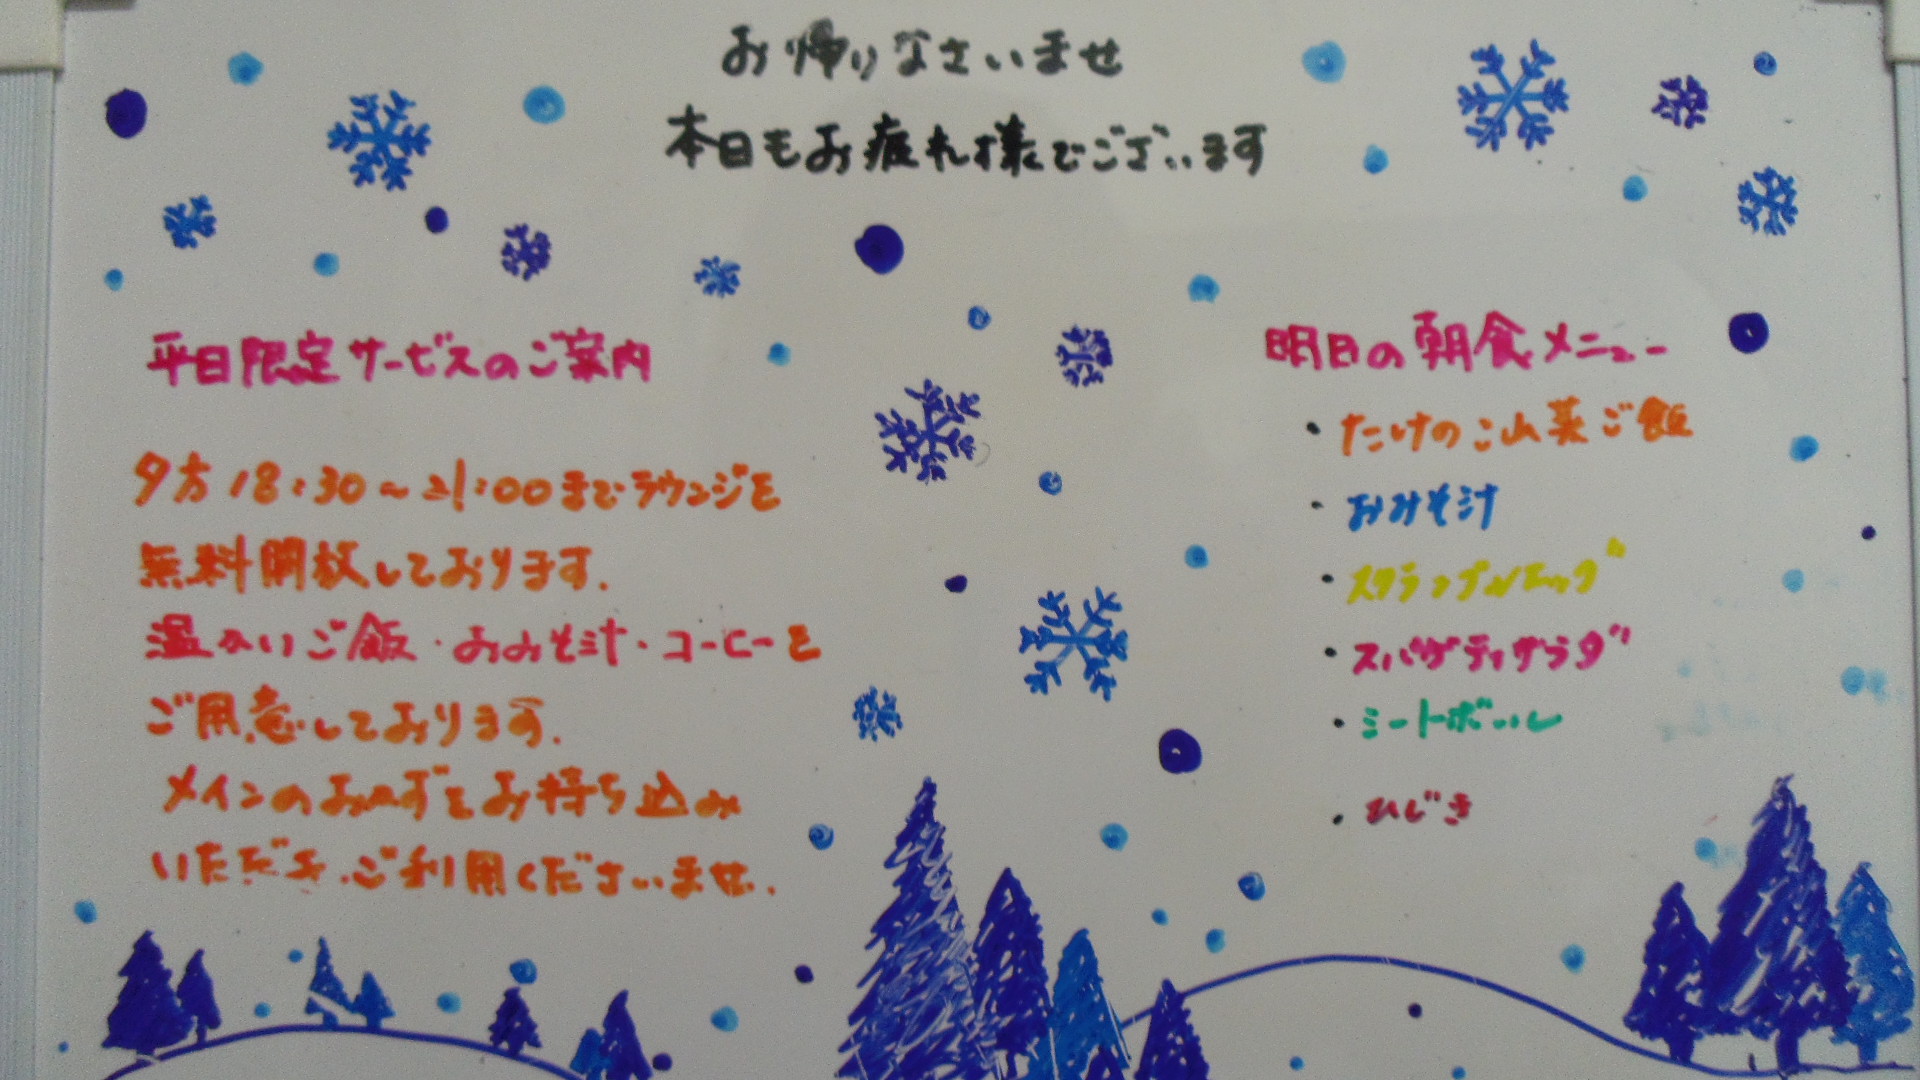 お帰りなさいませ
本日もお疲れ様でございます
平日限定サービスのご案内
夕方18:30～21:00までラウンジを
無料開放しております.
温かいご飯・おみそ汁・コーヒーを
ご用意しております.
メインのおかずをお持ち込み
いただき、ご利用くださいませ.
明日の朝食メニュー
・たけのこ山菜ご飯
・おみそ汁
・スクランブルエッグ
・スパゲティサラダ
・ミートボール
・ひじき